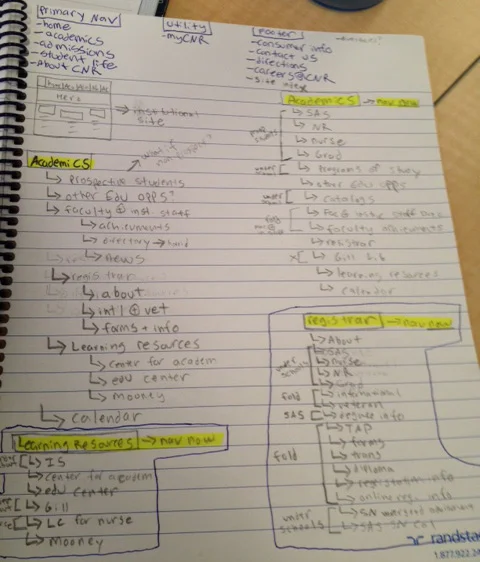 Primary Nav
-home
-academics
-admissions
-student life
-About CNR
Utility
myCNR
Footer
-consumer info
-contact us
-directions
-careers@CNR
-site index
Hero
→ institutional
site
what if
Academics
↳ prospective students
↳ other Edu opps?
↳ faculty + inst. staff
↳ achievements
↳ directory →
↳ news
↳ registrar
↳ about
↳ int'l + vet
↳ forms + info
↳ Learning resources
↳ center for academ
↳ edu center
↳ mooney
↳ calendar
Learning Resources → nav now
↳ IS
↳ center for academ
↳ edu center
↳ Gill
↳ LC for nurse
↳ mooney
Academics → nav now
↳ SAS
↳ NR
↳ nurse
↳ Grad
↳ programs of study
↳ other edu opps
↳ catalogs
↳ faculty achievements
↳ registrar
↳ Gill Lib
↳ learning resources
↳ calendar
registrar → nav now
↳ About
↳ SAS
↳ nurse
↳ NR
↳ Grad
fold
↳ international
↳ veteran
SAS ↳ degree info
↳ TAP
↳ forms
fold
↳ trans
↳ diploma
↳ registration info
↳ online reg. info
under
schools
↳ SAS SN cat
randsta
1.877.922.24